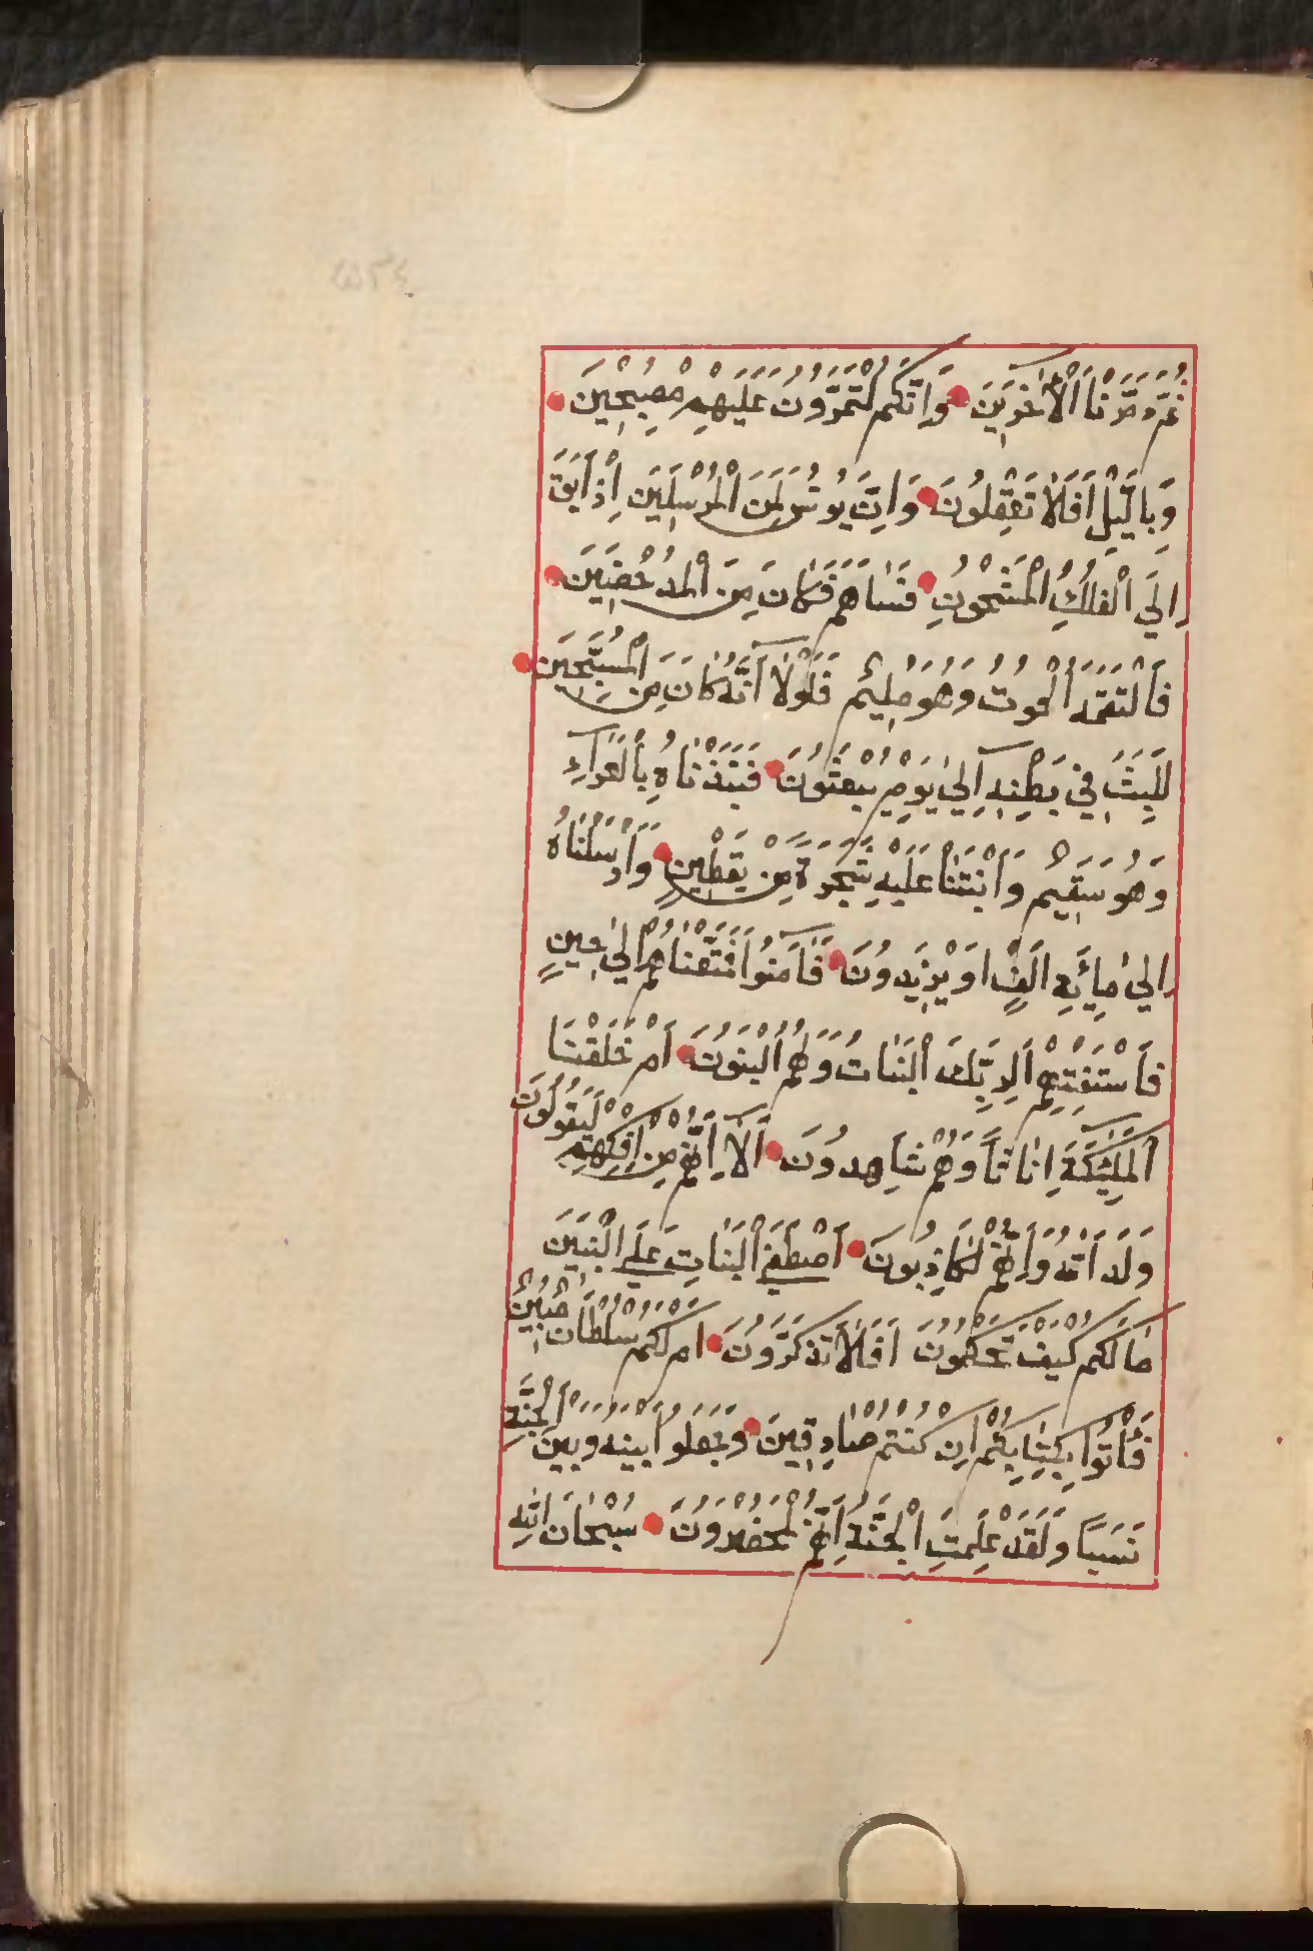 ثُمَّ دَمَّرْنَا الْآخَرِينَ وَإِنَّكُمْ لَتَمُرُّونَ عَلَيْهِمْ مُصْبِحِينَ
وَبِاللَّيْلِ أَفَلَا تَعْقِلُونَ وَإِنَّ يُونُسَ لَمِنَ الْمُرْسَلِينَ إِذْ أَبَقَ
إِلَى الْفُلْكِ الْمَشْحُونِ فَسَاهَمَ فَكَانَ مِنَ الْمُدْحَضِينَ
فَالْتَقَمَهُ الْحُوتُ وَهُوَ مُلِيمٌ فَلَوْلَا أَنَّهُ كَانَ مِنَ الْمُسَبِّحِينَ
لَلَبِثَ فِي بَطْنِهِ إِلَىٰ يَوْمِ يُبْعَثُونَ فَنَبَذْنَاهُ بِالْعَرَاءِ
وَهُوَ سَقِيمٌ وَأَنْبَتْنَا عَلَيْهِ شَجَرَةً مِنْ يَقْطِينٍ وَأَرْسَلْنَاهُ
إِلَىٰ مِائَةِ أَلْفٍ أَوْ يَزِيدُونَ فَآمَنُوا فَمَتَّعْنَاهُمْ إِلَىٰ حِينٍ
فَاسْتَفْتِهِمْ أَلِرَبِّكَ الْبَنَاتُ وَلَهُمُ الْبَنُونَ أَمْ خَلَقْنَا
الْمَلَٰئِكَةَ إِنَاثًا وَهُمْ شَاهِدُونَ أَلَا إِنَّهُمْ مِنْ إِفْكِهِمْ لَيَقُولُونَ
وَلَدَ اللَّهُ وَإِنَّهُمْ لَكَاذِبُونَ أَصْطَفَى الْبَنَاتِ عَلَى الْبَنِينَ
مَا لَكُمْ كَيْفَ تَحْكُمُونَ أَفَلَا تَذَكَّرُونَ أَمْ لَكُمْ سُلْطَانٌ مُبِينٌ
فَأْتُوا بِكِتَابِكُمْ إِنْ كُنْتُمْ صَادِقِينَ وَجَعَلُوا بَيْنَهُ وَبَيْنَ الْجِنَّةِ
نَسَبًا وَلَقَدْ عَلِمَتِ الْجِنَّةُ إِنَّهُمْ لَمُحْضَرُونَ سُبْحَانَ اللَّهِ